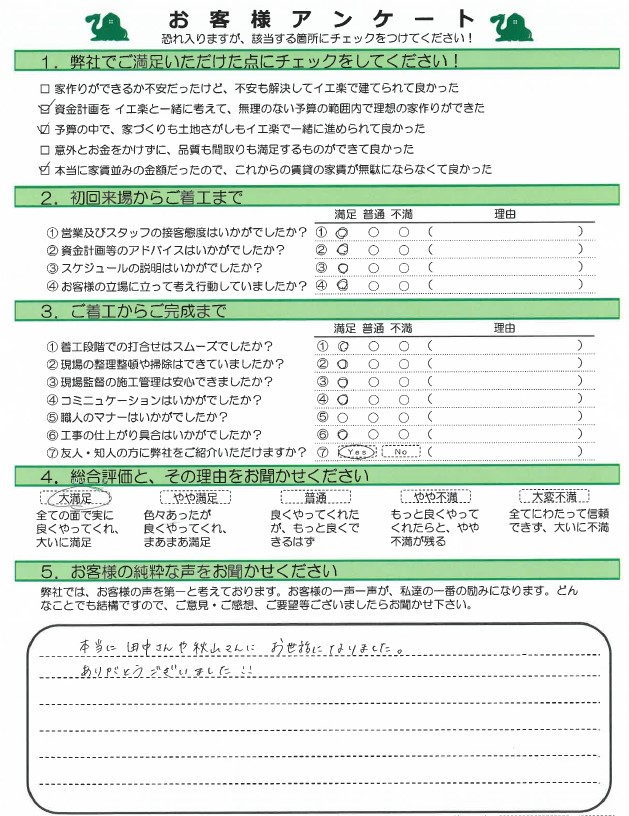 お客様アンケート
恐れ入りますが、該当する箇所にチェックをつけてください！
1．弊社でご満足いただけた点にチェックをしてください！
□ 家作りができるか不安だったけど、不安も解決してイエ楽で建てられて良かった
☑ 資金計画を イエ楽と一緒に考えて、無理のない予算の範囲内で理想の家作りができた
☑ 予算の中で、家づくりも土地さがしもイエ楽で一緒に進められて良かった
□ 意外とお金をかけずに、品質も間取りも満足するものができて良かった
☑ 本当に家賃並みの金額だったので、これからの賃貸の家賃が無駄にならなくて良かった
2．初回来場からご着工まで
満足 普通 不満 理由
①営業及びスタッフの接客態度はいかがでしたか？ ① ○ ○ ○ （ ）
②資金計画等のアドバイスはいかがでしたか？ ② ○ ○ ○ （ ）
③スケジュールの説明はいかがでしたか？ ③ ○ ○ ○ （ ）
④お客様の立場に立って考え行動していましたか？ ④ ○ ○ ○ （ ）
3．ご着工からご完成まで
満足 普通 不満 理由
①着工段階での打合せはスムーズでしたか？ ① ○ ○ ○ （ ）
②現場の整理整頓や掃除はできていましたか？ ② ○ ○ ○ （ ）
③現場監督の施工管理は安心できましたか？ ③ ○ ○ ○ （ ）
④コミニュケーションはいかがでしたか？ ④ ○ ○ ○ （ ）
⑤職人のマナーはいかがでしたか？ ⑤ ○ ○ ○ （ ）
⑥工事の仕上がり具合はいかがでしたか？ ⑥ ○ ○ ○ （ ）
⑦友人・知人の方に弊社をご紹介いただけますか？ ⑦ Yes No （ ）
4．総合評価と、その理由をお聞かせください
大満足 やや満足 普通 やや不満 大変不満
全ての面で実に 色々あったが 良くやってくれた もっと良くやって 全てにわたって信頼
良くやってくれ、 良くやってくれ、 が、もっと良くで くれたらと、やや できず、大いに不満
大いに満足 まあまあ満足 きるはず 不満が残る
5．お客様の純粋な声をお聞かせください
弊社では、お客様の声を第一と考えております。お客様の一声一声が、私達の一番の励みになります。どん
なことでも結構ですので、ご意見・ご感想、ご要望等ございましたらお聞かせ下さい。
本当に 田中さんや秋山さんに お世話になりました。
ありがとうございました!!